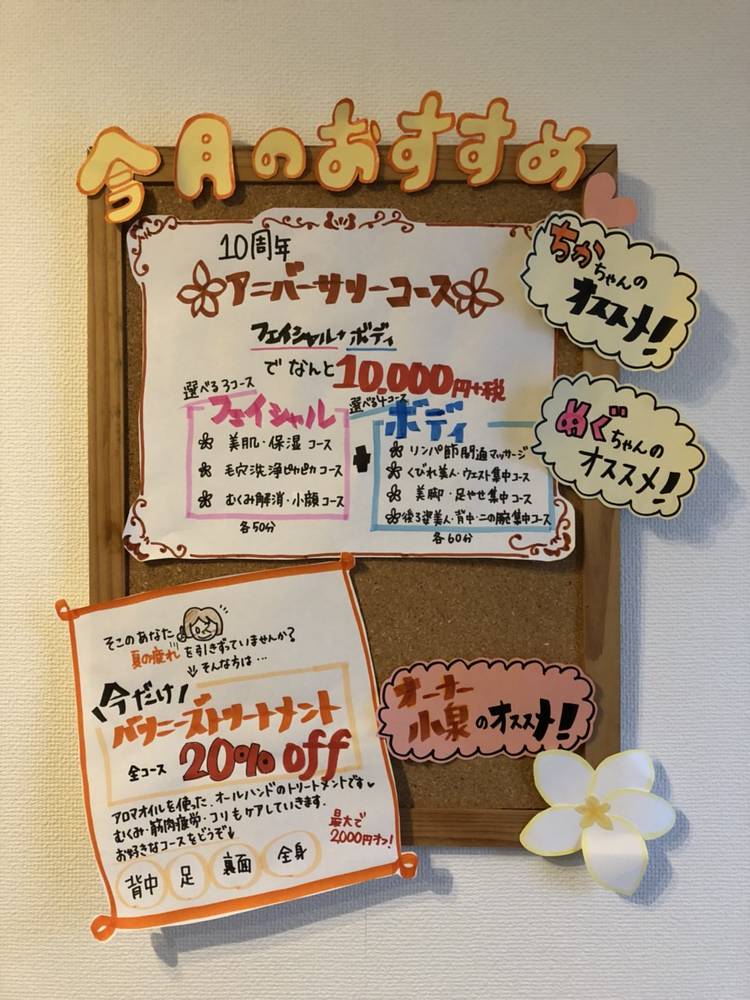 今月のおすすめ
10周年
アニバーサリーコース
フェイシャル+ボディ
でなんと10,000円+税
選べる3コース
フェイシャル
美肌・保湿コース
毛穴洗浄ピカピカコース
むくみ解消・小顔コース
各50分
+
選べる4コース
ボディ
リンパ節開通マッサージ
くびれ美人・ウエスト集中コース
美脚・足やせ集中コース
後ろ姿美人・背中・二の腕集中コース
各60分
ちかちゃんの
オススメ!
めぐちゃんの
オススメ!
そこのあなた
夏の疲れを引きずっていませんか?
↓そんな方は…
\今だけ/
バリニーズトリートメント
全コース 20% off
アロマオイルを使った、オールハンドのトリートメントです♥
むくみ・筋肉疲労・コリもケアしていきます.
お好きなコースをどうぞ↓
最大で
2,000円オフ!
背中 足 裏面 全身
オーナー
小泉のオススメ!